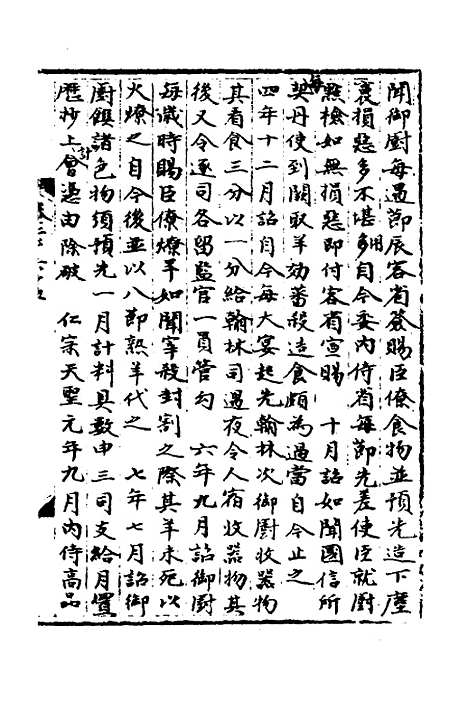 聞御厨每遇節辰客省簽賜臣僚食物並預先造下塵
裛損惡多不堪用自今委內侍省每節先差使臣就厨
點檢如無損惡即付客省宣賜　十月詔如聞國信所
每契丹使到闕取羊効蕃殺造食頗為過當自今止之
四年十二月詔自今每大宴起先翰林次御厨收器物
其看食三分以一分給翰林司過夜令人宿收器物其
後又令逐司各留監官一員管勾　六年九月詔御厨
每歲時賜臣僚燎羊如聞宰殺封割之際其羊未死以
火燎之自今後並以八節熟羊代之　七年七月詔御
厨饌諸色物須預先一月計料具數申三司支給月置
曆抄上會計憑由除破　仁宗天聖元年九月內侍高品